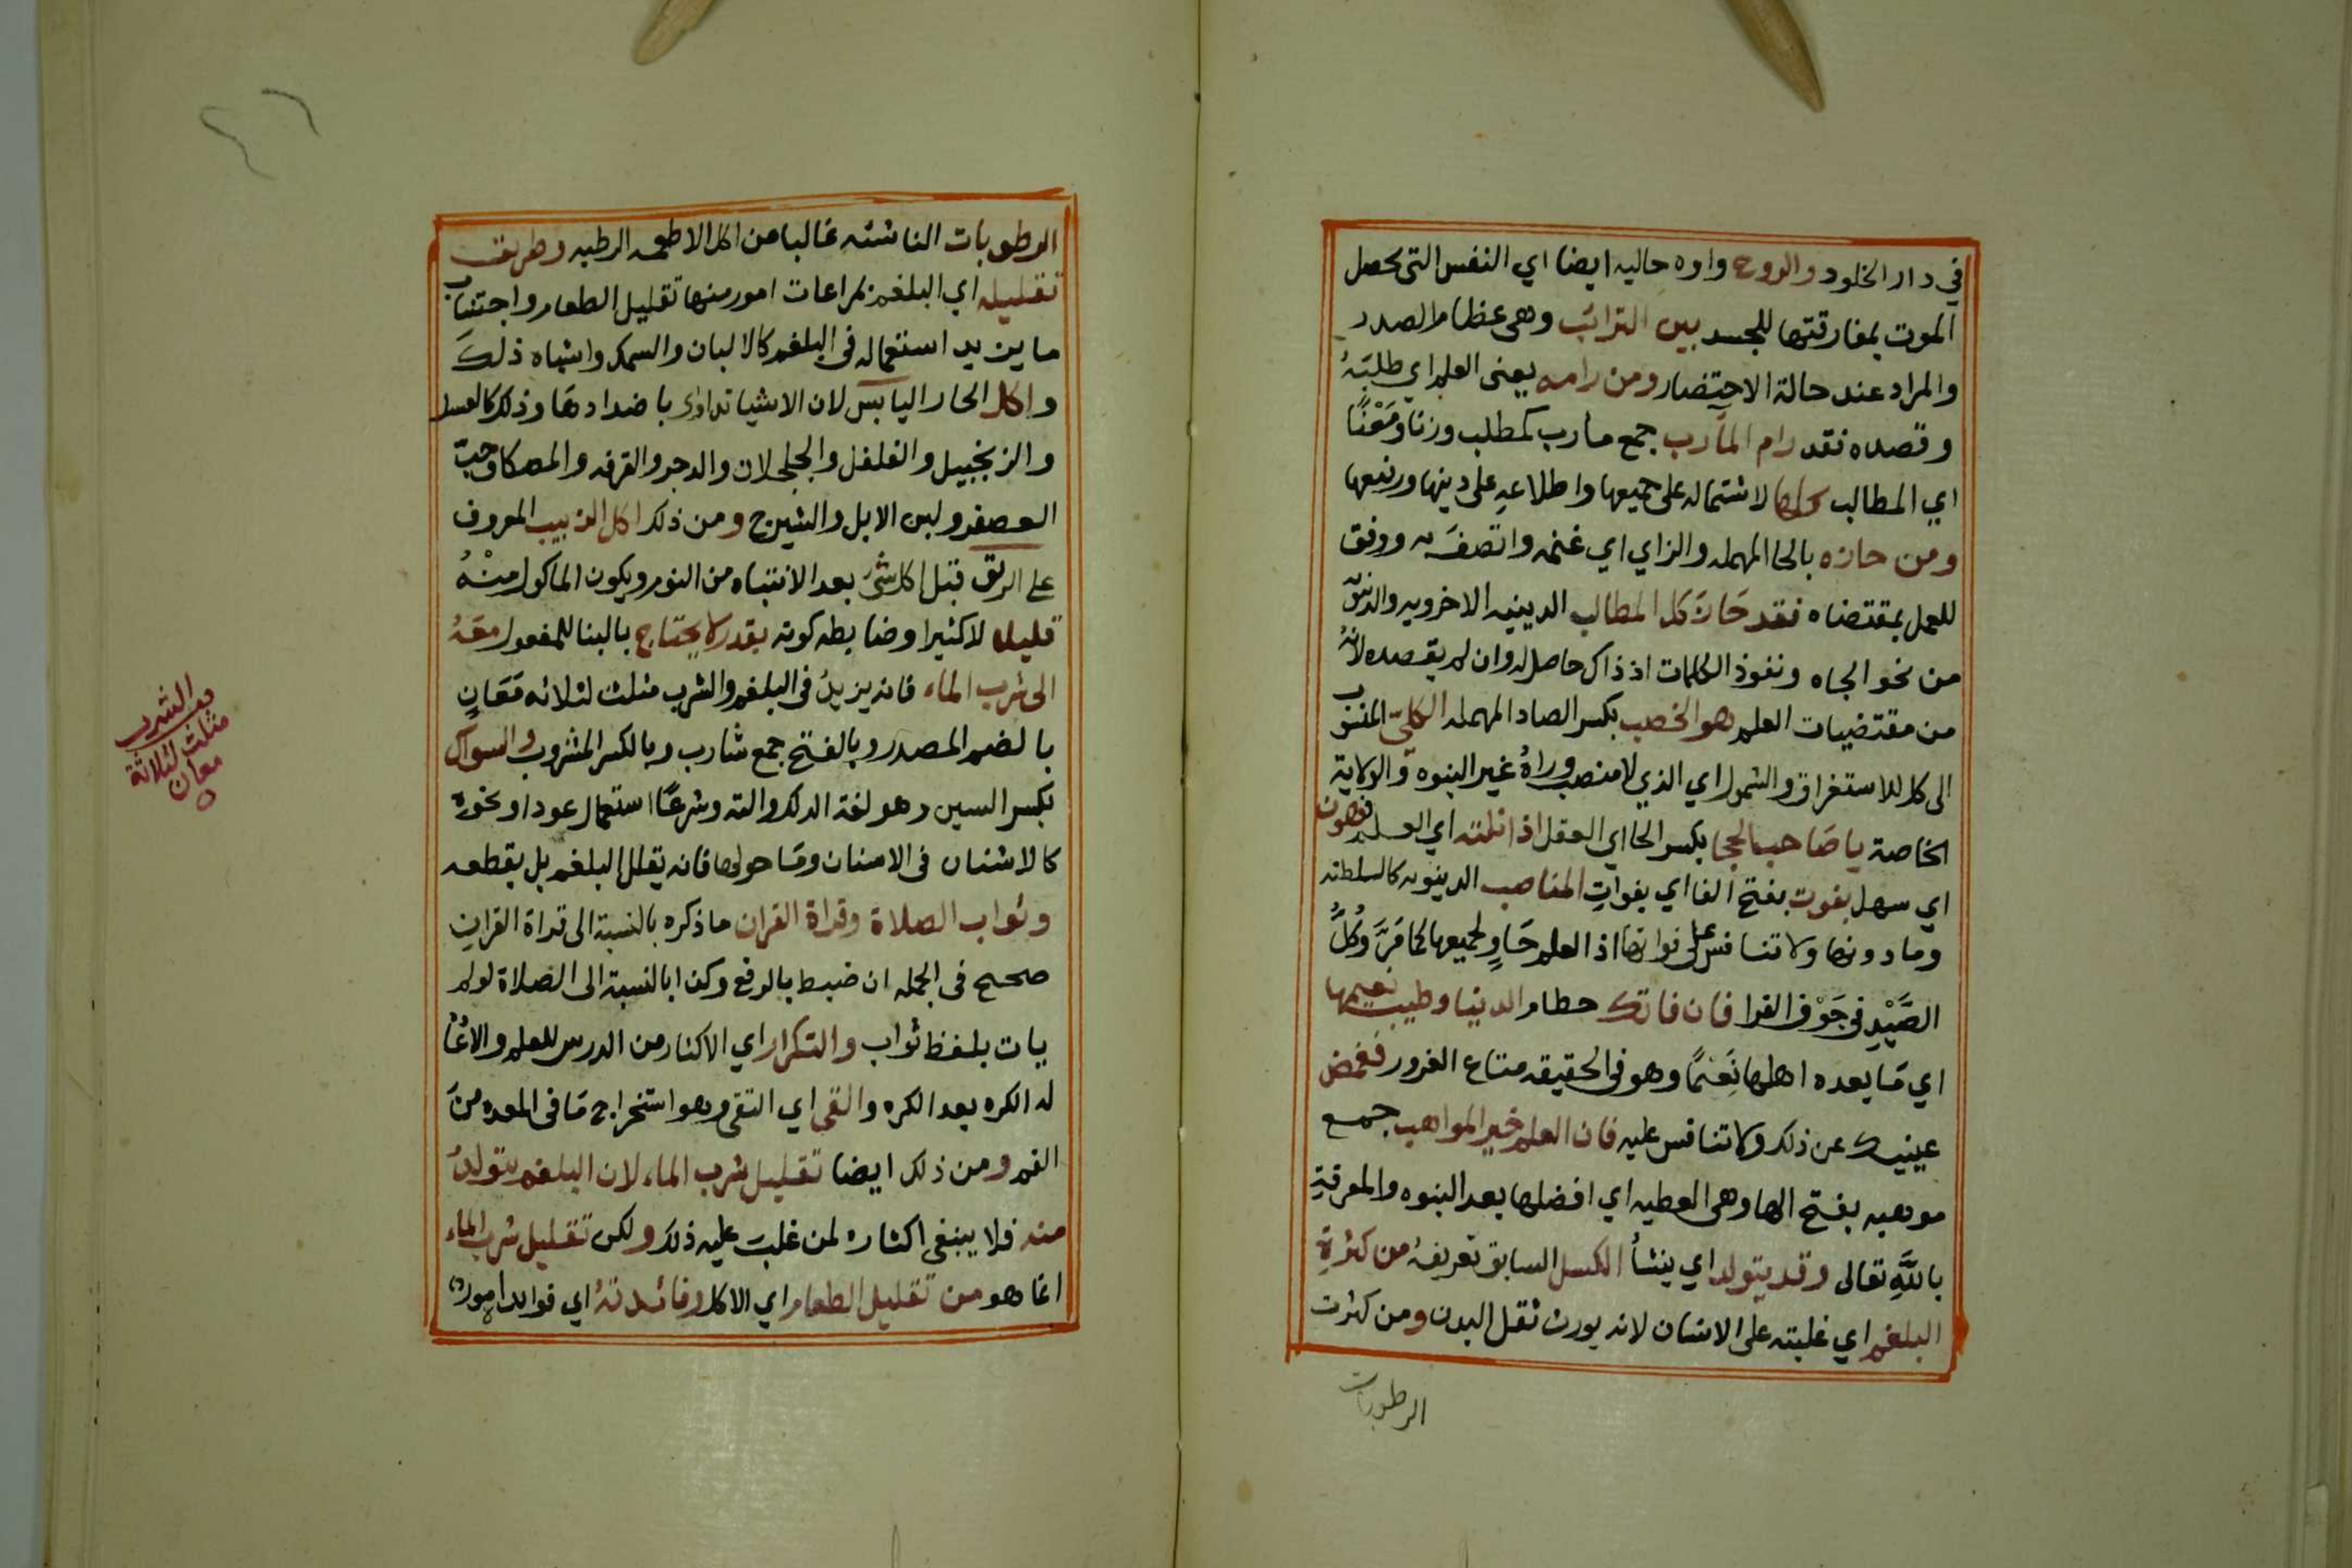 في دار الخلود والروح واوه حاليه ايضا اي النفس التى يحصل
الموت بمفارقتها للجسد بين الترائب وهى عظام الصدر
والمراد عند حالة الاحتضار ومن رامه يعنى العلم اي طلبَهُ
وقصده فقد رام المآرب جمع مارب كمطلب وزنا ومَعْنًا
اي المطالب كلها لاشتماله على جميعها واطلاعه على دينها ورفيعها
ومن حازه بالحا المهمله والزاي اي غنمه واتصفَ به ووفق
للعمل بمقتضاه فقد حَازَ كل المطالب الدينيه الاخرويه والدنيويه
من نحو الجاه ونفوذ الكلمات اذ ذاك حاصل له وان لم يقصده لانهُ
من مقتضيات العلم هو الخصب بكسر الصاد المهمله الكليّ المنسوب
الى كل للاستغراق والشمول اي الذي لا منصب وراهُ غير النبوه والولاية
الخاصة يا صَاحب الحجا بكسر الحا اي العقل اذا نلته اي العلم فهون
اي سهل بفوت بفتح الفا اي بفواتِ المناصب الدينويه كالسلطانه
وما دونها ولا تنافس على فواتها اذ العلم حَاوٍ لجميعها كما مَرَّ وكُلُّ
الصَّيْدِ فى جَوْف الفرا فان فاتك حطام الدنيا وطيب نعيمها
اي مَا يعده اهلها نَعَمًا وهو فى الحقيقه متاع الغرور فغمض
عينيك عن ذلك ولا تنافس عليه فان العلم خير المواهب جمع
موهبه بفتح الها وهى العطيه اي افضلها بعد النبوه والمعرفةِ
باللَّهِ تعالى وقد يتولد اي ينشأُ الكسل السابق تعريفهُ من كثرةِ
البلغم اي غلبته على الانسان لانه يورث ثقل البدن ومن كثرت
الرطوبات
الرطوبات الناشئه غالبا من اكل الاطعمه الرطبه وطريق
تقليله اي البلغم بمراعات امور منها تقليل الطعام واجتناب
ما يزيد استعماله فى البلغم كالالبان والسمك واشباه ذلكَ
واكل الحار اليابس لان الاشيا تداوى باضدادهَا وذلك كالعسل
والزنجبيل والفلفل والجلجلان والدجر والقرفه والمصكا وحبّ
العصفر ولبن الابل والشيرج ومن ذلك اكل الزبيب المعروف
على الريق قبل اكل شئ بعد الانتباه من النوم ويكون الماكول منْهُ
قليلا لا كثيرا وضابطه كونه بقدر لا يحتاج بالبنا للمفعول معَهُ
الى شرب الماء فانه يزيدُ فى البلغم والشرب مثلث لثلاثه مَعَانٍ
بالضم المصدر وبالفتح جمع شارب وبالكسر المشروب والسواك
بكسر السين وهو لغة الدلك والته وشرعًا استعمال عود او نحوه
كالاشنان فى الاسنان ومَا حولها فانه يقلل البلغم بل يقطعه
وثواب الصلاة وقراة القران ما ذكره بالنسبة الى قراة القرانِ
صحيح فى الجمله ان ضبط بالرفع وكذا بالنسبة الى الصلاة لو لم
يات بلفظ ثواب والتكرار اي الاكثار من الدرس للعلم
له الكره بعد الكره والقى اي التقى وهو استخراج مَا فى المعده منَ
الفم ومن ذلك ايضا تقليل شرب الماء لان البلغم يتولدُ
منه فلا ينبغى اكثاره لمن غلبَ عليه ذلك ولكن تقليل شرب الماء
انما هو من تقليل الطعام اي الاكل وفائدتهُ اي فوايد امور
الشرب
مثلث لثلاثة
معان